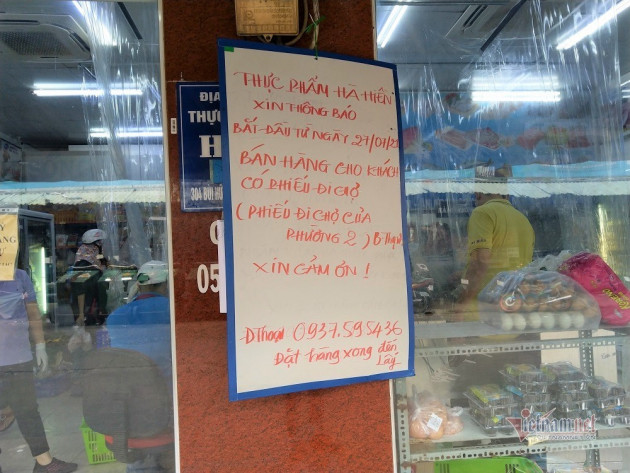 THỰC PHẨM HÀ HIỀN
XIN THÔNG BÁO
BẮT ĐẦU TỪ NGÀY 27/01/2
BÁN HÀNG CHO KHÁCH
CÓ PHIẾU ĐI CHỢ
(PHIẾU ĐI CHỢ CỦA
PHƯỜNG 2) B.Thạnh
XIN CẢM ƠN!
Đ.Thoại 0937.595436
Đặt hàng xong đến
Lấy
ĐỊA
THỰ
H
304 BÙI HỮ
05
Vietnamnet